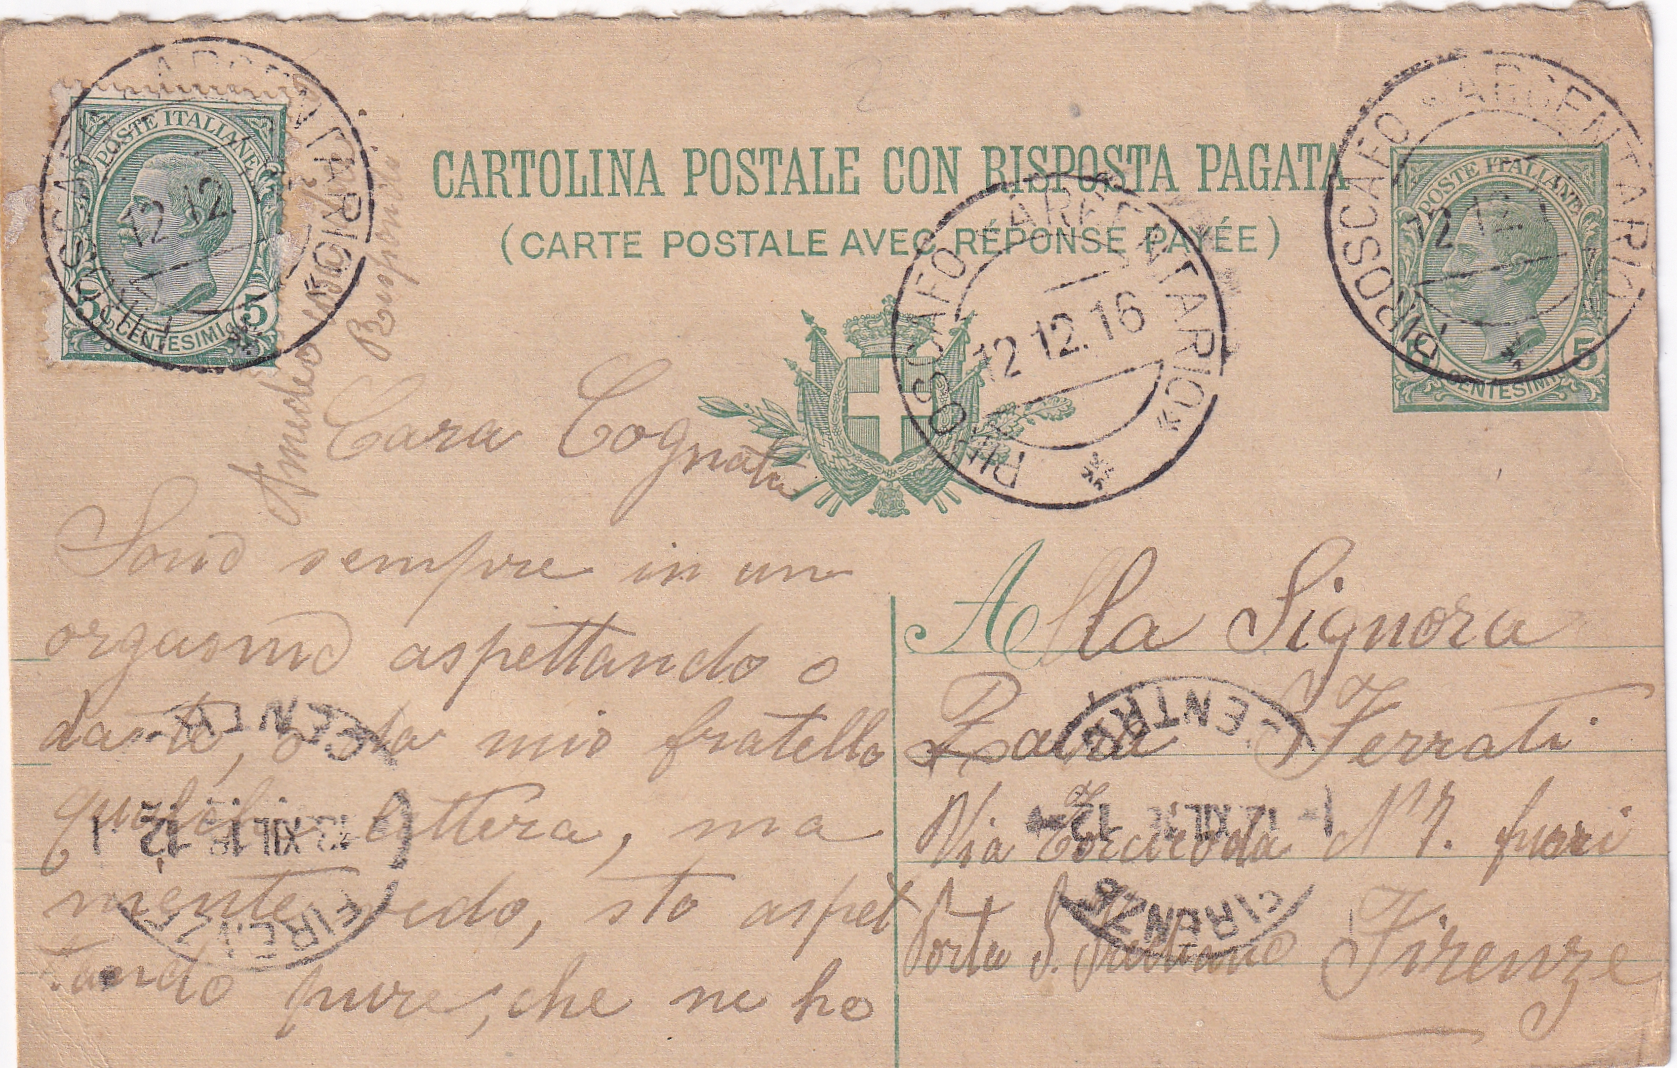 CARTOLINA POSTALE CON RISPOSTA PAGATA
(CARTE POSTALE AVEC RÉPONSE PAYÉE)
POSTE ITALIANE
5 CENTESIMI 5
PIROSCAFO "ARGENTARIO"
12.12.
PIROSCAFO "ARGENTARIO"
12.12.16
POSTE ITALIANE
CENTESIMI 5
PIROSCAFO "ARGENTARIO"
12.12.1
Amedeo
Rispondi
Cara Cognata
Sono sempre in un
orgasmo aspettando o
da te, o da mio fratello
qualche lettera, ma
niente vedo, sto aspet
tando pure, che ne ho
Alla Signora
Zaira Ferrati
Via N° 7. fuori
Porta S. Frediano Firenze
FIRENZE
CENTRO
XII.16 12
FIRENZE
CENTRO
XII. 12